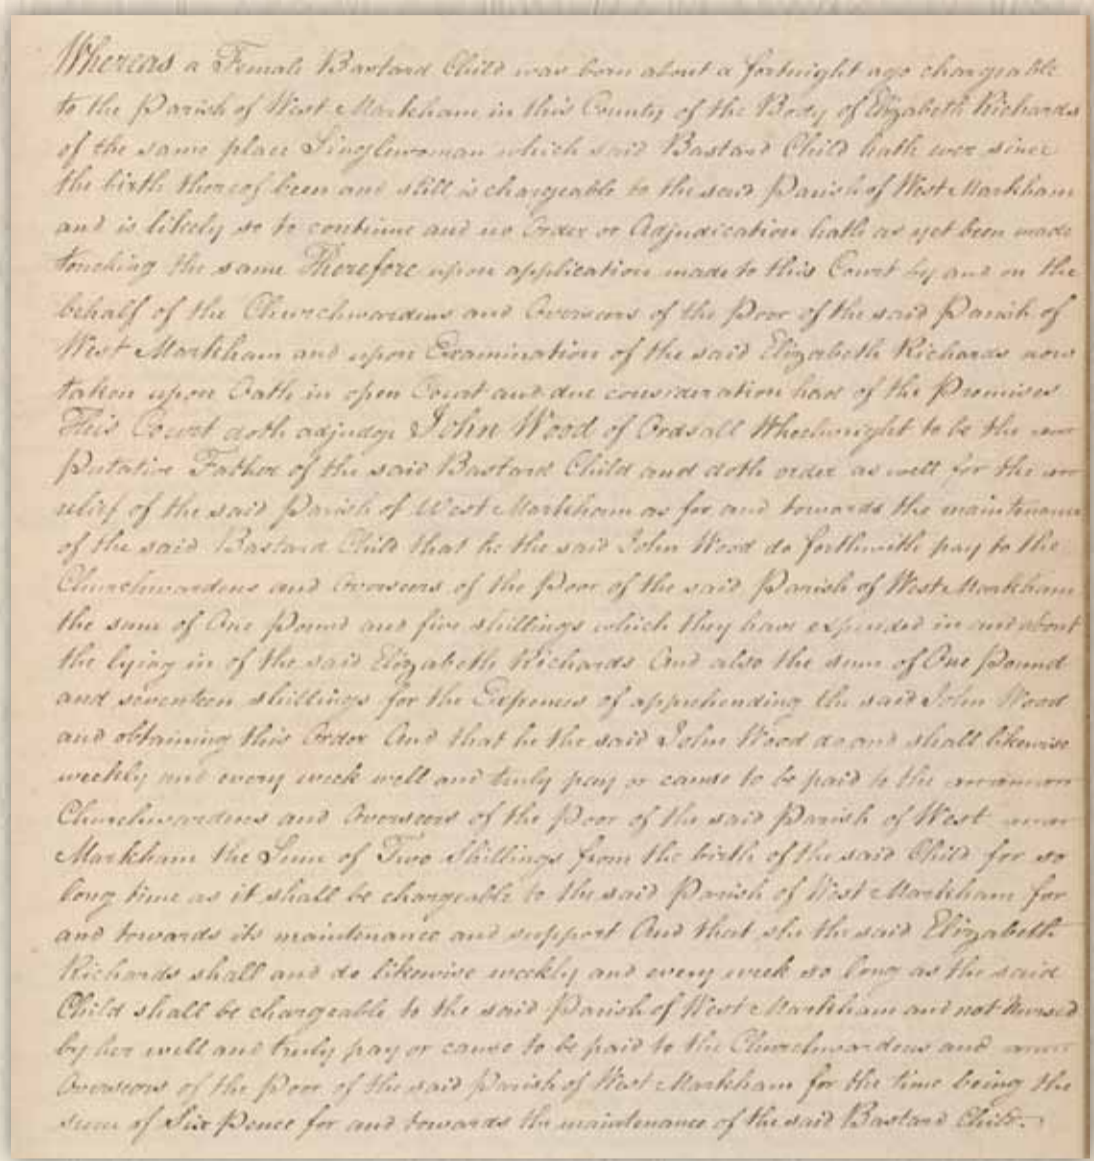 Whereas a Female Bastard Child was born about a fortnight ago chargeable
to the Parish of West Markham in this County of the Body of Elizabeth Richards
of the same place Singlewoman which said Bastard Child hath ever since
the birth thereof been and still is chargeable to the said Parish of West Markham
and is likely so to continue and no Order or Adjudication hath as yet been made
touching the same Therefore upon application made to this Court by and on the
behalf of the Churchwardens and Overseers of the Poor of the said Parish of
West Markham and upon Examination of the said Elizabeth Richards now
taken upon Oath in open Court and due consideration had of the Premises
This Court doth adjudge John Wood of Ordsall Wheelwright to be the
Putative Father of the said Bastard Child and doth order as well for the
relief of the said Parish of West Markham as for and towards the maintenance
of the said Bastard Child that he the said John Wood do forthwith pay to the
Churchwardens and Overseers of the Poor of the said Parish of West Markham
the sum of One Pound and five shillings which they have expended in and about
the lying in of the said Elizabeth Richards And also the sum of One Pound
and seventeen shillings for the Expences of apprehending the said John Wood
and obtaining this Order And that he the said John Wood do and shall likewise
weekly and every week well and truly pay or cause to be paid to the
Churchwardens and Overseers of the Poor of the said Parish of West
Markham the Sum of Two Shillings from the birth of the said Child for so
long time as it shall be chargeable to the said Parish of West Markham for
and towards its maintenance and support And that she the said Elizabeth
Richards shall and do likewise weekly and every week so long as the said
Child shall be chargeable to the said Parish of West Markham and not Nursed
by her well and truly pay or cause to be paid to the Churchwardens and
Overseers of the Poor of the said Parish of West Markham for the time being the
sum of Six Pence for and towards the maintenance of the said Bastard Child.